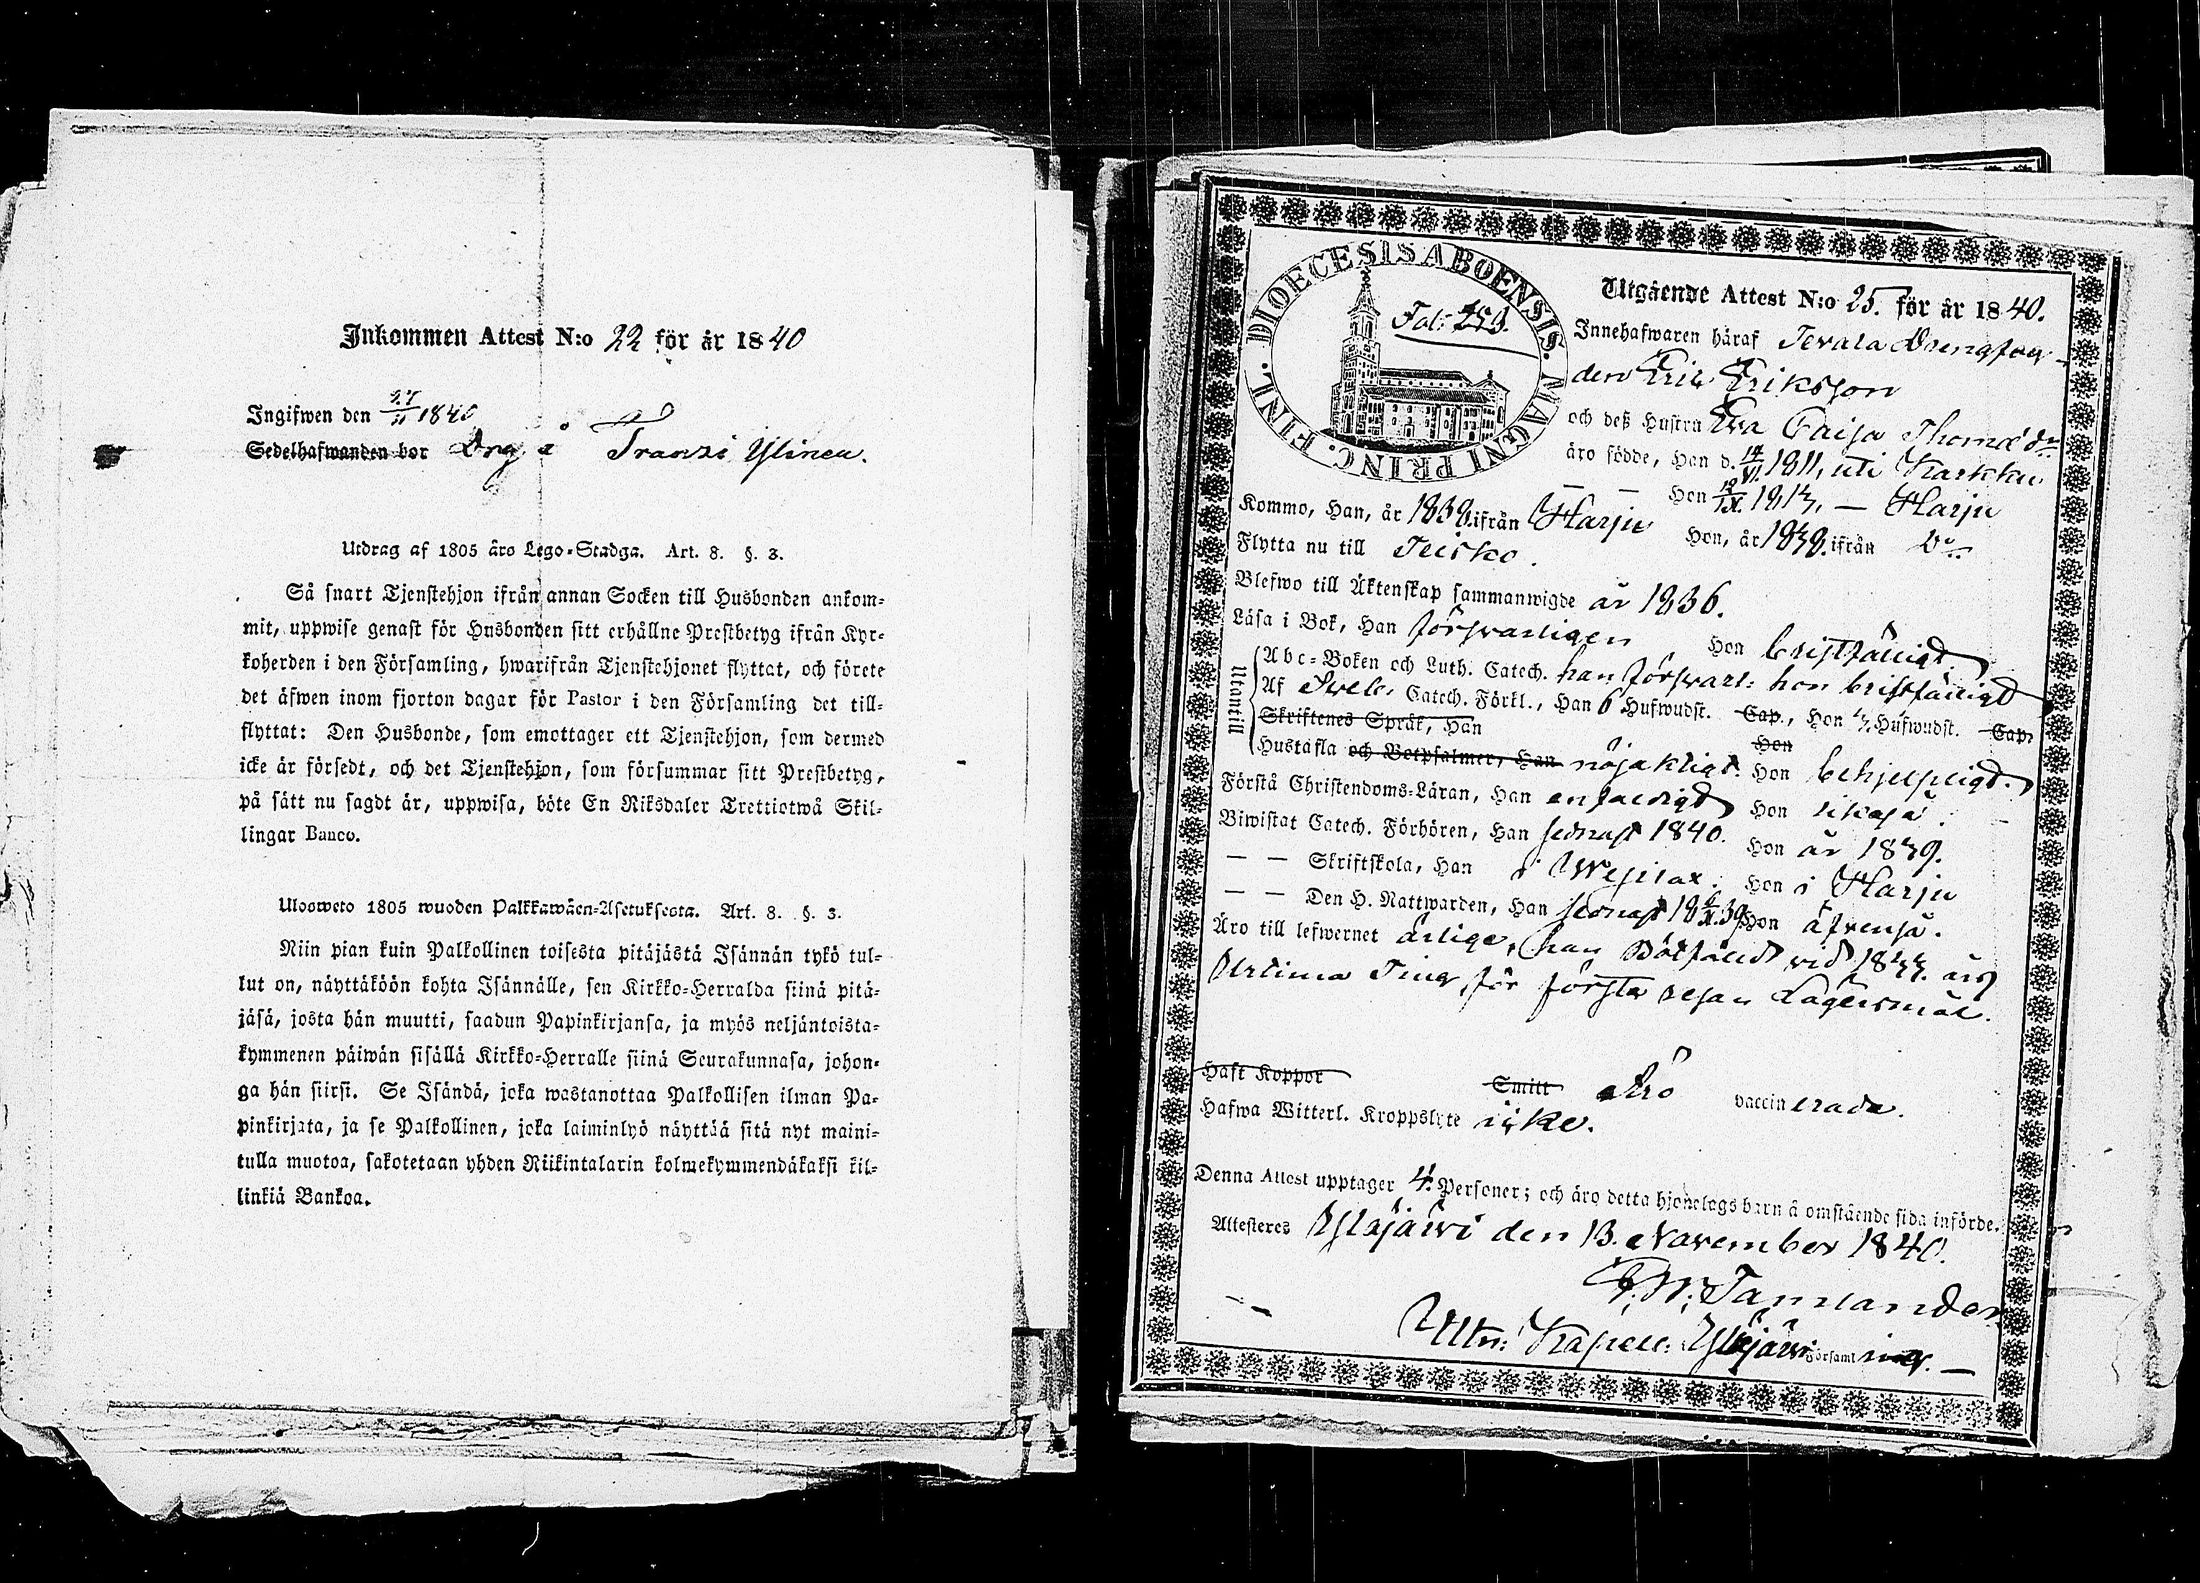 Inkommen Attest N:o 22 för år 1840
Ingifwen den 27/11 1840
Sedelhafwanden bor Drg å Franzi Ylinen.
Utdrag af 1805 års Lego-Stadga. Art. 8. §. 3.
Så snart Tjenstehjon ifrån annan Socken till Husbonden ankom-
mit, uppwise genast för Husbonden sitt erhållne Prestbetyg ifrån Kyr-
koherden i den Församling, hwarifrån Tjenstehjonet flyttat, och förete
det äfwen inom fjorton dagar för Pastor i den Församling det till-
flyttat: Den Husbonde, som emottager ett Tjenstehjon, som dermed
icke är försedt, och det Tjenstehjon, som försummar sitt Prestbetyg,
på sätt nu sagdt är, uppwisa, böte En Riksdaler Trettiotwå Skil-
lingar Banco.
Ulosweto 1805 wuoden Palkkawäen-Asetuksesta. Art. 8. §. 3.
Niin pian kuin Palkollinen toisesta pitäjästä Isännän tykö tul-
lut on, näyttäköön kohta Isännälle, sen Kirkko-Herralda siinä pitä-
jäsä, josta hän muutti, saadun Papinkirjansa, ja myös neljäntoista-
kymmenen päiwän sisällä Kirkko-Herralle siinä Seurakunnasa, johon-
ga hän siirsi. Se Isändä, joka wastanottaa Palkollisen ilman Pa-
pinkirjata, ja se Palkollinen, joka laiminlyö näyttää sitä nyt maini-
tulla muotoa, sakotetaan yhden Riikintalarin kolmekymmendäkaksi kil-
linkiä Bankoa.
DIOECESIS ABOENSIS. MAGNI PRINC. FINL.
Fol: 253.
Utgående Attest N:o 25. för år 1840.
Innehafwaren häraf
den Eric Eriksson
och deß Hustru Eva Caisa Thomædr
äro födde, Han d. 14/VI 1811, uti Karkku
— — Hon 18/IX 1817, — Harju
Kommo, Han, år 1838 ifrån Harju Hon, år 1838 ifrån Do
Flytta nu till Teisko.
Blefwo till Äktenskap sammanwigde år 1836.
Läsa i Bok, Han försvarligen Hon bristfälligt
Utantill
Abc-Boken och Luth. Catech. han försvarl: hon bristfälligt
Af Sveb. Catech. Förkl., Han 6 Hufwudst. Cap., Hon Hufwudst. Cap.
Skriftenes Språk, Han Hon
Hustafla och Botpsalmer, Han nöjaktigt. Hon behjelpligt.
Förstå Christendoms-Läran, Han enfaldigt Hon likaså.
Biwistat Catech. Förhören, Han sednast 1840. Hon år 1839.
— — Skriftskola, Han i Wesilax. Hon i Harju
— — Den H. Nattwarden, Han sednast Hon äfvenså.
Äro till lefwernet ärlige, han Bötfäld vid års
Urtima Ting, för första resan Lägersmål.
Haft Koppor Smitt Äro vaccinerade.
Hafwa Witterl. Kroppslyte icke.
Denna Attest upptager 4. Personer; och äro detta hjonelags barn å omstående sida införde.
Attesteras Ylöjärvi den 13. November 1840.
Kapell: Ylöjärvi Församling.